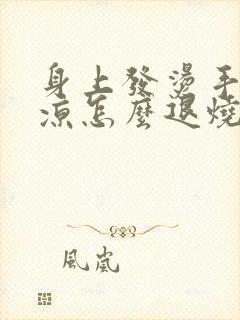 身上發燙手
涼怎麼退燒
風嵐